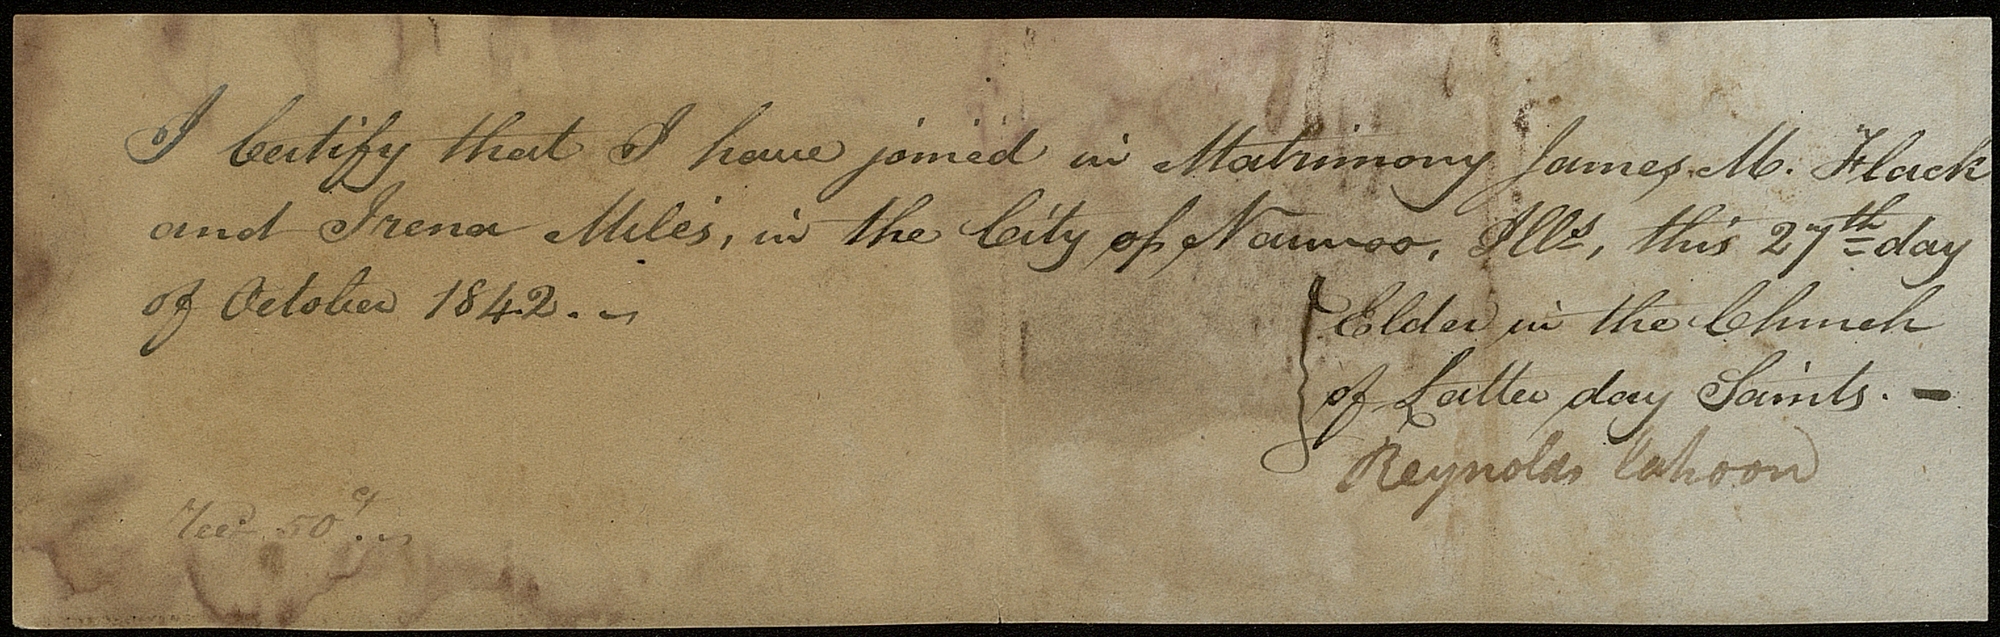 I Certify that I have joined in Matrimony James M. Flack
and Irena Miles, in the City of Nauvoo, Ills, this 27th day
of October 1842. ~
Elder in the Church
of Latter day Saints. —
Reynolds Cahoon
50